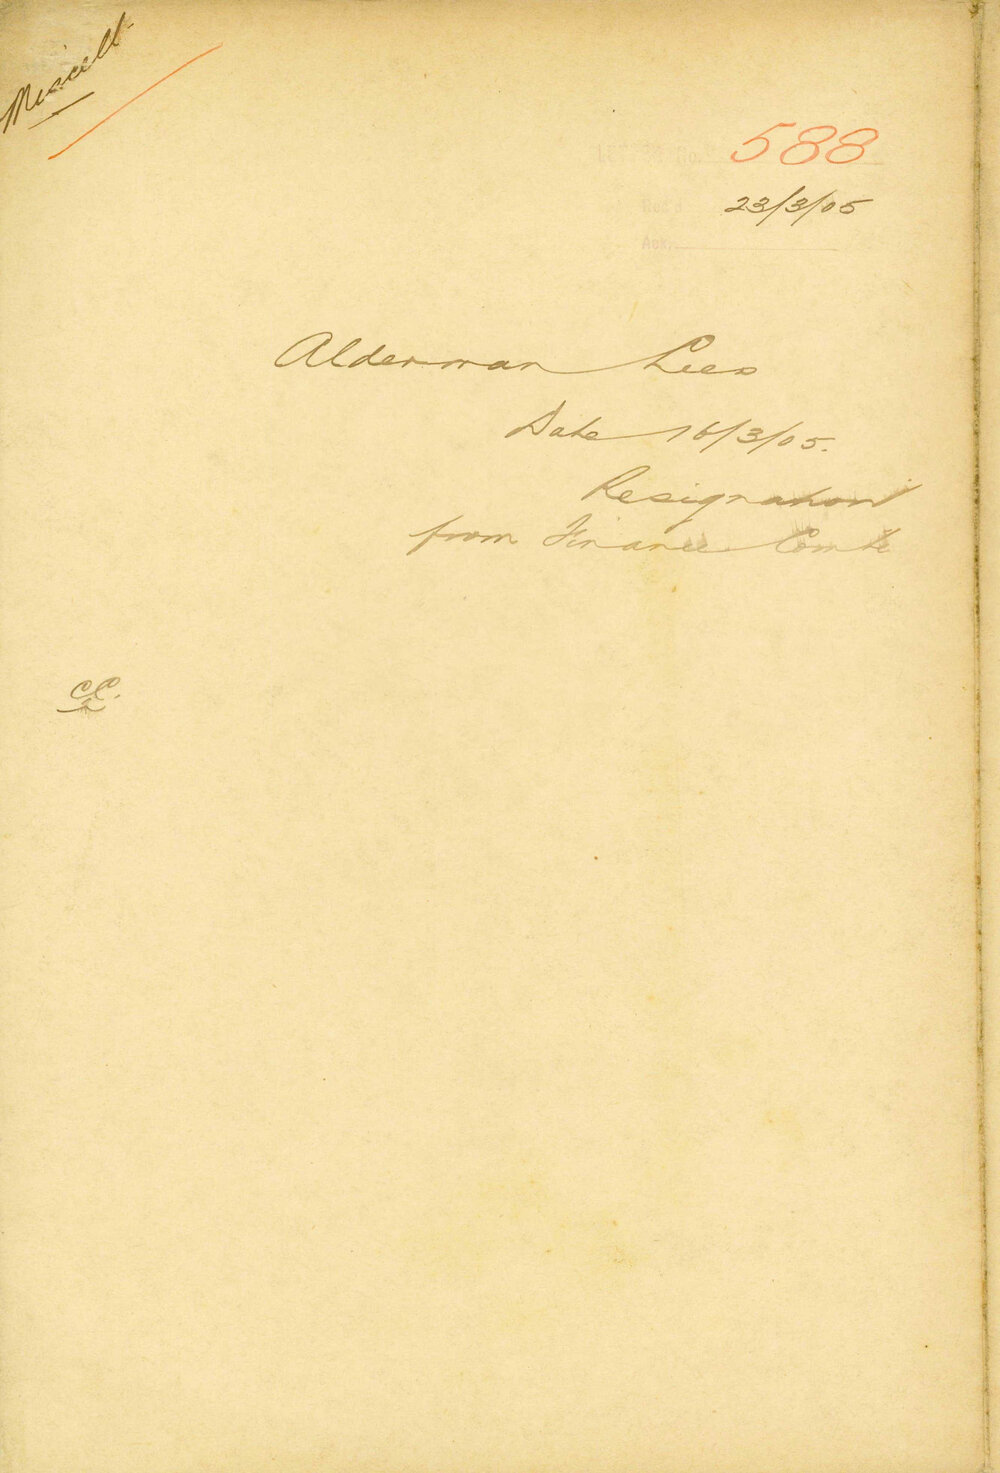 Miscell.
LETTER No. 588
Rec'd 23/3/05
Ack.
Alderman Lees
Date 16/3/05.
Resignation
from Finance Comte